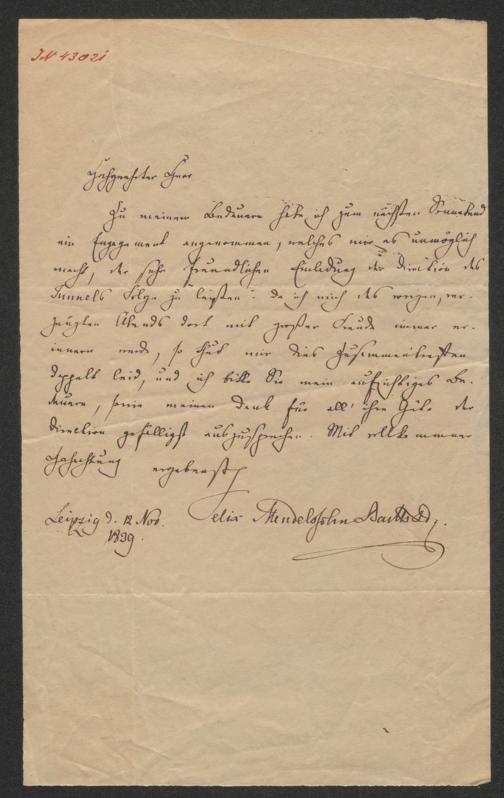 IN 43021
Hochgeehrter Herr
Zu meinem Bedauern habe ich zum nächsten Sonnabend
ein Engagement angenommen, welches mir es unmöglich
macht, der sehr freundlichen Einladung der Direction des
Tunnels Folge zu leisten. da ich mich des vorigen, ver-
gnügten Abends dort mit großer Freude immer er-
innern werde, so thut mir dies Zusammentreffen
doppelt leid, und ich bitte Sie mein aufrichtiges Be-
dauern, sowie meinen Dank für all' ihre Güte der
Direction gefälligst auszusprechen. Mit vollkommener
Hochachtung ergebenst
Leipzig d. 12 Nov. Felix Mendelssohn Bartholdy.
1839.